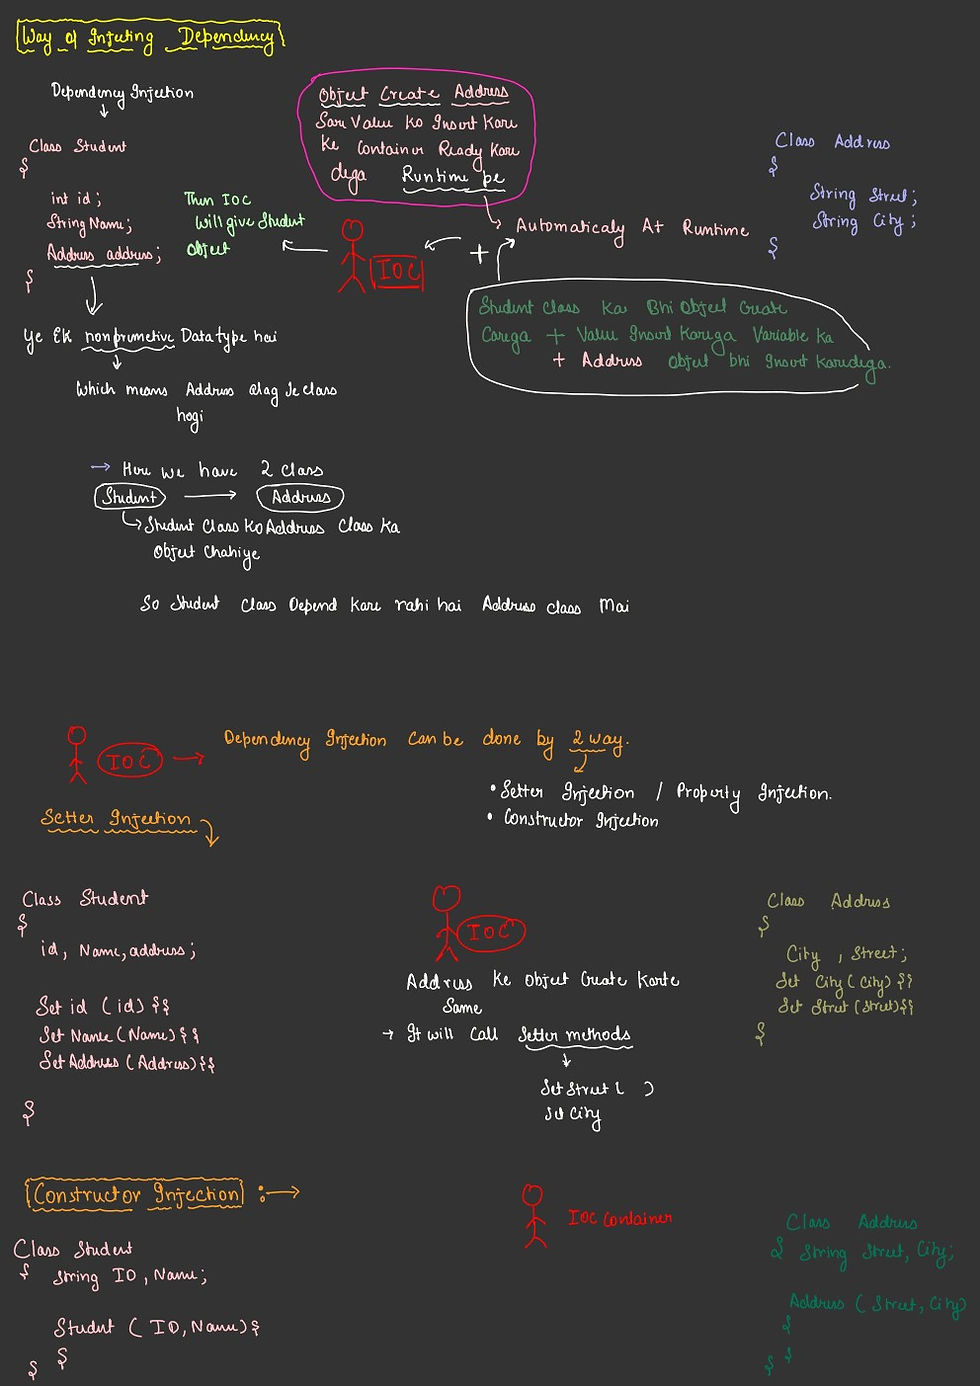 Way of Injecting Dependency
Dependency Injection
Class Student
{
int id;
String Name;
Address address;
}
Then IOC
Will give Student
Object
Object Create Address
Sari Value Ko Insert Kare
Ke Container Ready Kare
dega Runtime pe
IOC
+
Automaticaly At Runtime
Class Address
{
String Street;
String City;
}
Student Class Ka Bhi Object Create
Carega + Value Insert Karega Variable Ka
+ Address Object bhi Insert Karedega.
Ye EK nonprimetive Datatype hai
Which means Address alag Je class
hogi
→ Here we have 2 Class
Student → Address
Student Class Ko Address Class Ka
Object Chahiye
So Student Class Depend Kare rahi hai Address class Mai
IOC → Dependency Injection Can be done by 2 way.
• Setter Injection / Property Injection.
• Constructor Injection
Setter Injection
Class Student
{
id, Name, address;
Set id (id) {}
Set Name (Name) {}
Set Address (Address) {}
}
IOC
Address Ke Object Create Karte
Same
→ It will Call Setter methods
Set Street ( )
Set City
Class Address
{
City , Street;
Set City (City) {}
Set Street (Street) {}
}
Constructor Injection :→
Class Student
{ String ID, Name;
Student ( ID, Name) {
}
}
IOC Container
Class Address
{ String Street, City;
Address ( Street, City)
{
}
}